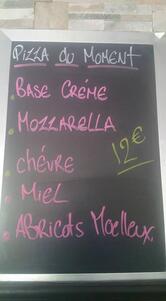 PIZZA DU MOMENT
BASE CRÉME
MOZZARELLA
12€
CHÉVRE
MIEL
ABRICOTS MOELLEUX